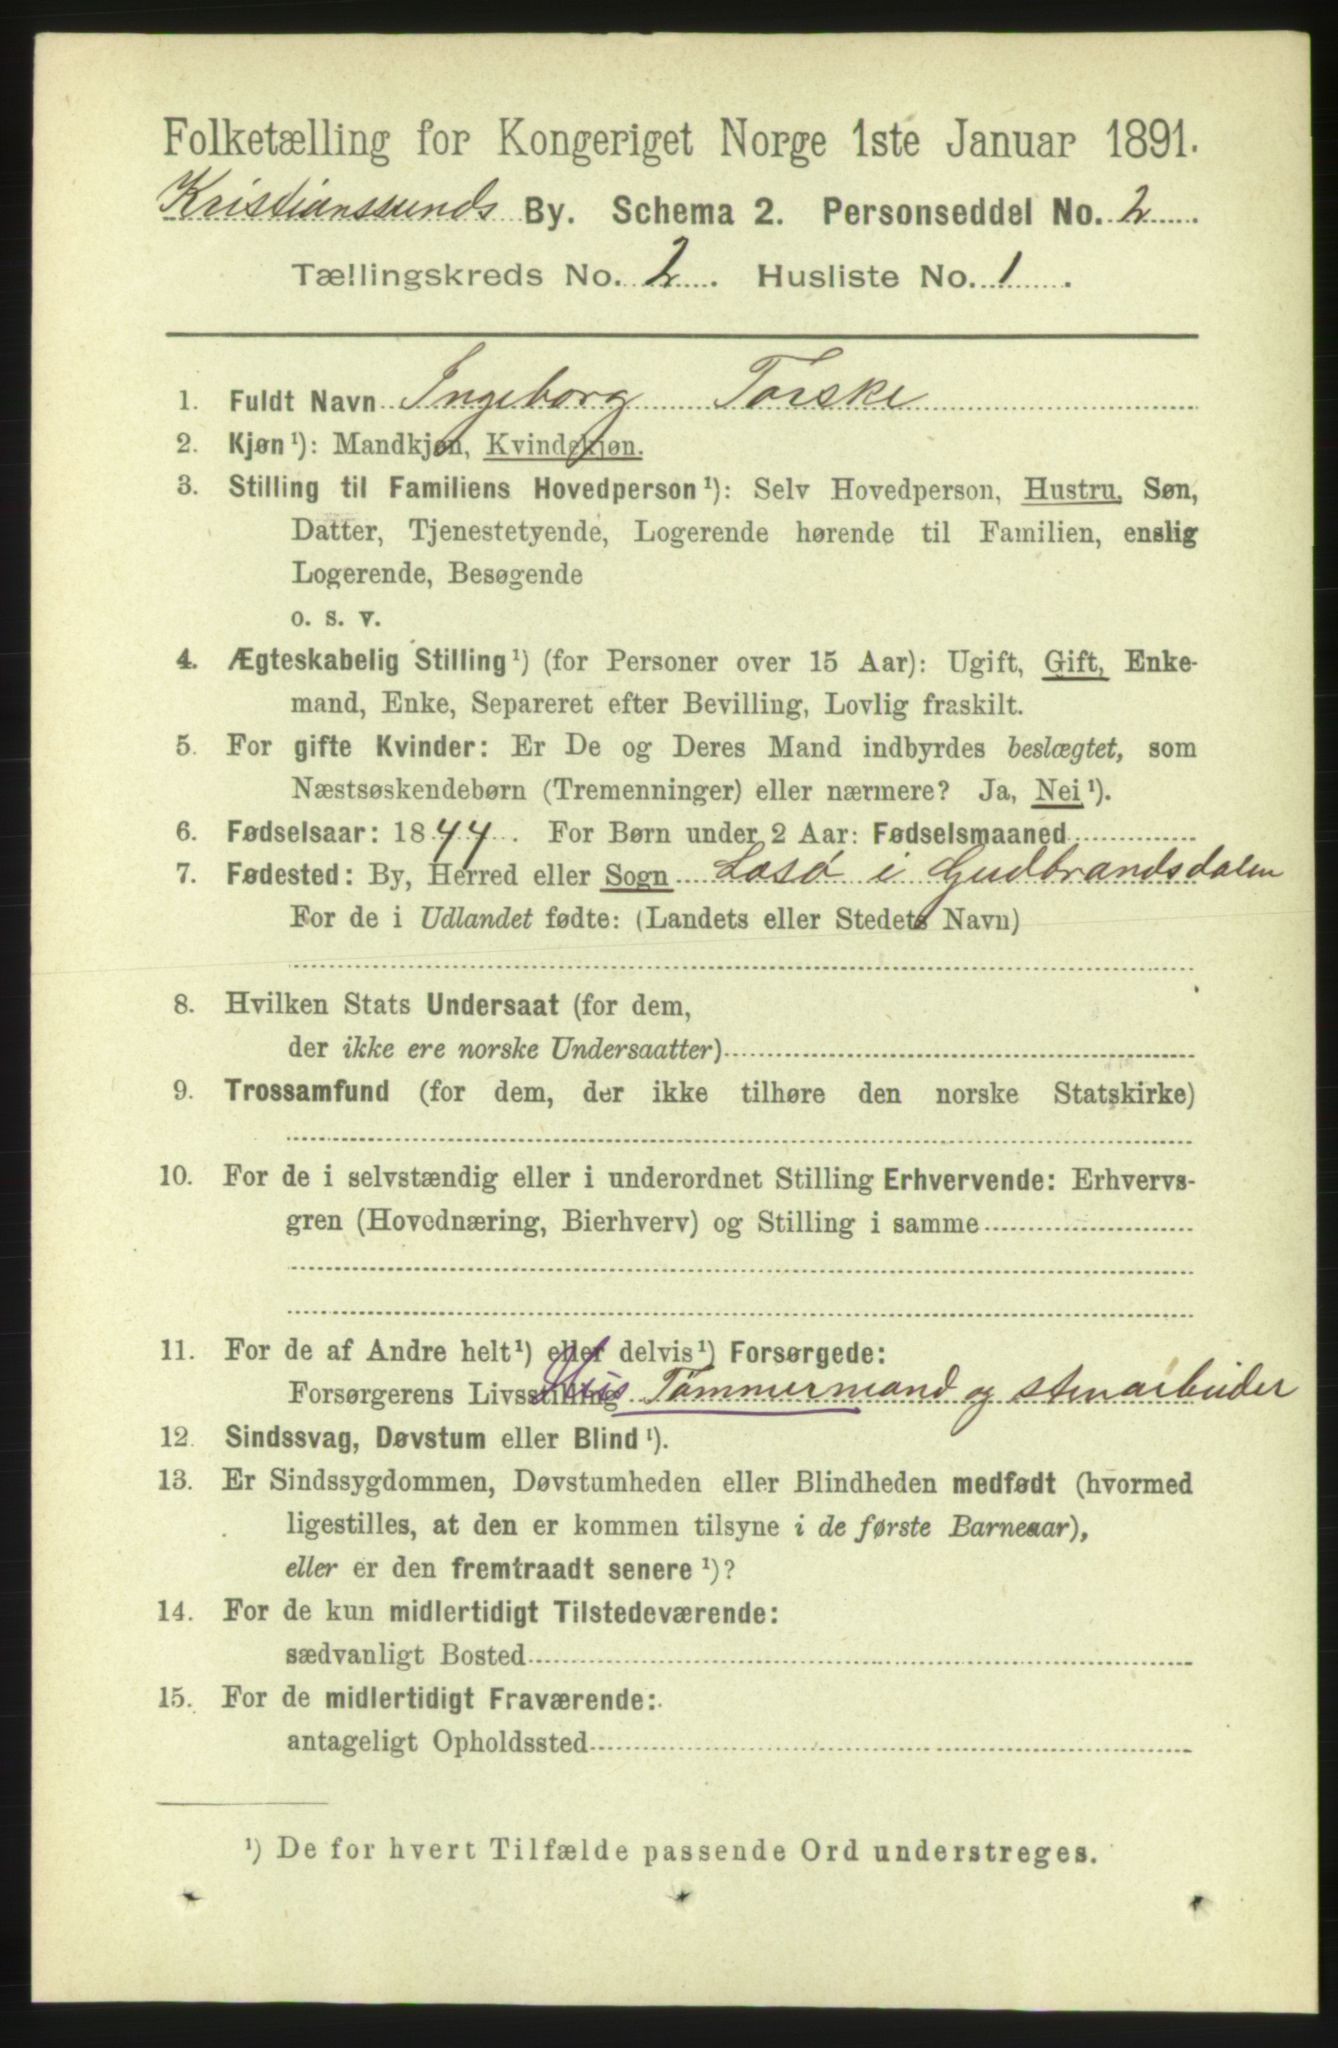 Folketælling for Kongeriget Norge 1ste Januar 1891.
Kristianssunds By. Schema 2. Personseddel No. 2
Tællingskreds No. 2. Husliste No. 1.
1. Fuldt Navn Ingeborg Torske
2. Kjøn¹): Mandkjøn, Kvindekjøn.
3. Stilling til Familiens Hovedperson¹): Selv Hovedperson, Hustru, Søn,
Datter, Tjenestetyende, Logerende hørende til Familien, enslig
Logerende, Besøgende
o. s. v.
4. Ægteskabelig Stilling¹) (for Personer over 15 Aar): Ugift, Gift, Enke-
mand, Enke, Separeret efter Bevilling, Lovlig fraskilt.
5. For gifte Kvinder: Er De og Deres Mand indbyrdes beslægtet, som
Næstsøskendebørn (Tremenninger) eller nærmere? Ja, Nei¹).
6. Fødselsaar: 1844. For Børn under 2 Aar: Fødselsmaaned
7. Fødested: By, Herred eller Sogn Lesø i Gudbrandsdalen
For de i Udlandet fødte: (Landets eller Stedets Navn)
8. Hvilken Stats Undersaat (for dem,
der ikke ere norske Undersaatter)
9. Trossamfund (for dem, der ikke tilhøre den norske Statskirke)
10. For de i selvstændig eller i underordnet Stilling Erhvervende: Erhvervs-
gren (Hovednæring, Bierhverv) og Stilling i samme
11. For de af Andre helt¹) eller delvis¹) Forsørgede:
Forsørgerens Livsstilling Tømmermand og stenarbeider
12. Sindssvag, Døvstum eller Blind¹).
13. Er Sindssygdommen, Døvstumheden eller Blindheden medfødt (hvormed
ligestilles, at den er kommen tilsyne i de første Barneaar),
eller er den fremtraadt senere¹)?
14. For de kun midlertidigt Tilstedeværende:
sædvanligt Bosted
15. For de midlertidigt Fraværende:
antageligt Opholdssted
¹) De for hvert Tilfælde passende Ord understreges.